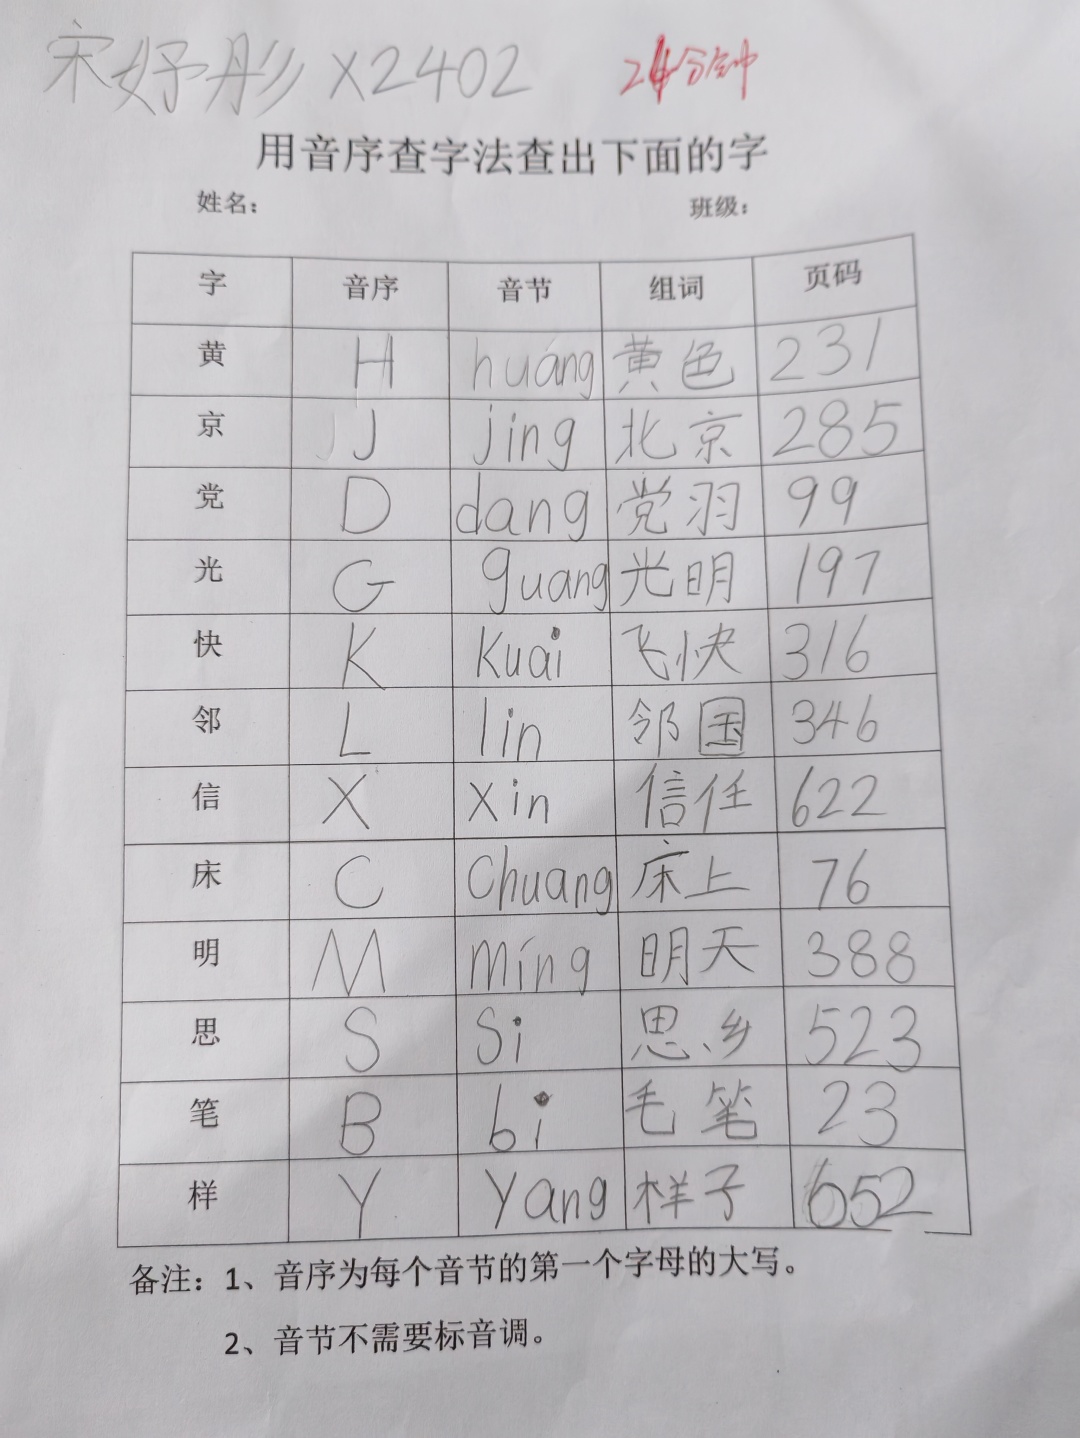 宋妤彤 X2402 24分钟
用音序查字法查出下面的字
姓名： 班级：
字 音序 音节 组词 页码
黄 H huáng 黄色 231
京 J jing 北京 285
党 D dang 党羽 99
光 G guang 光明 197
快 K kuai 飞快 316
邻 L lin 邻国 346
信 X xin 信任 622
床 C chuang 床上 76
明 M míng 明天 388
思 S si 思乡 523
笔 B bi 毛笔 23
样 Y yang 样子 652
备注：1、音序为每个音节的第一个字母的大写。
2、音节不需要标音调。